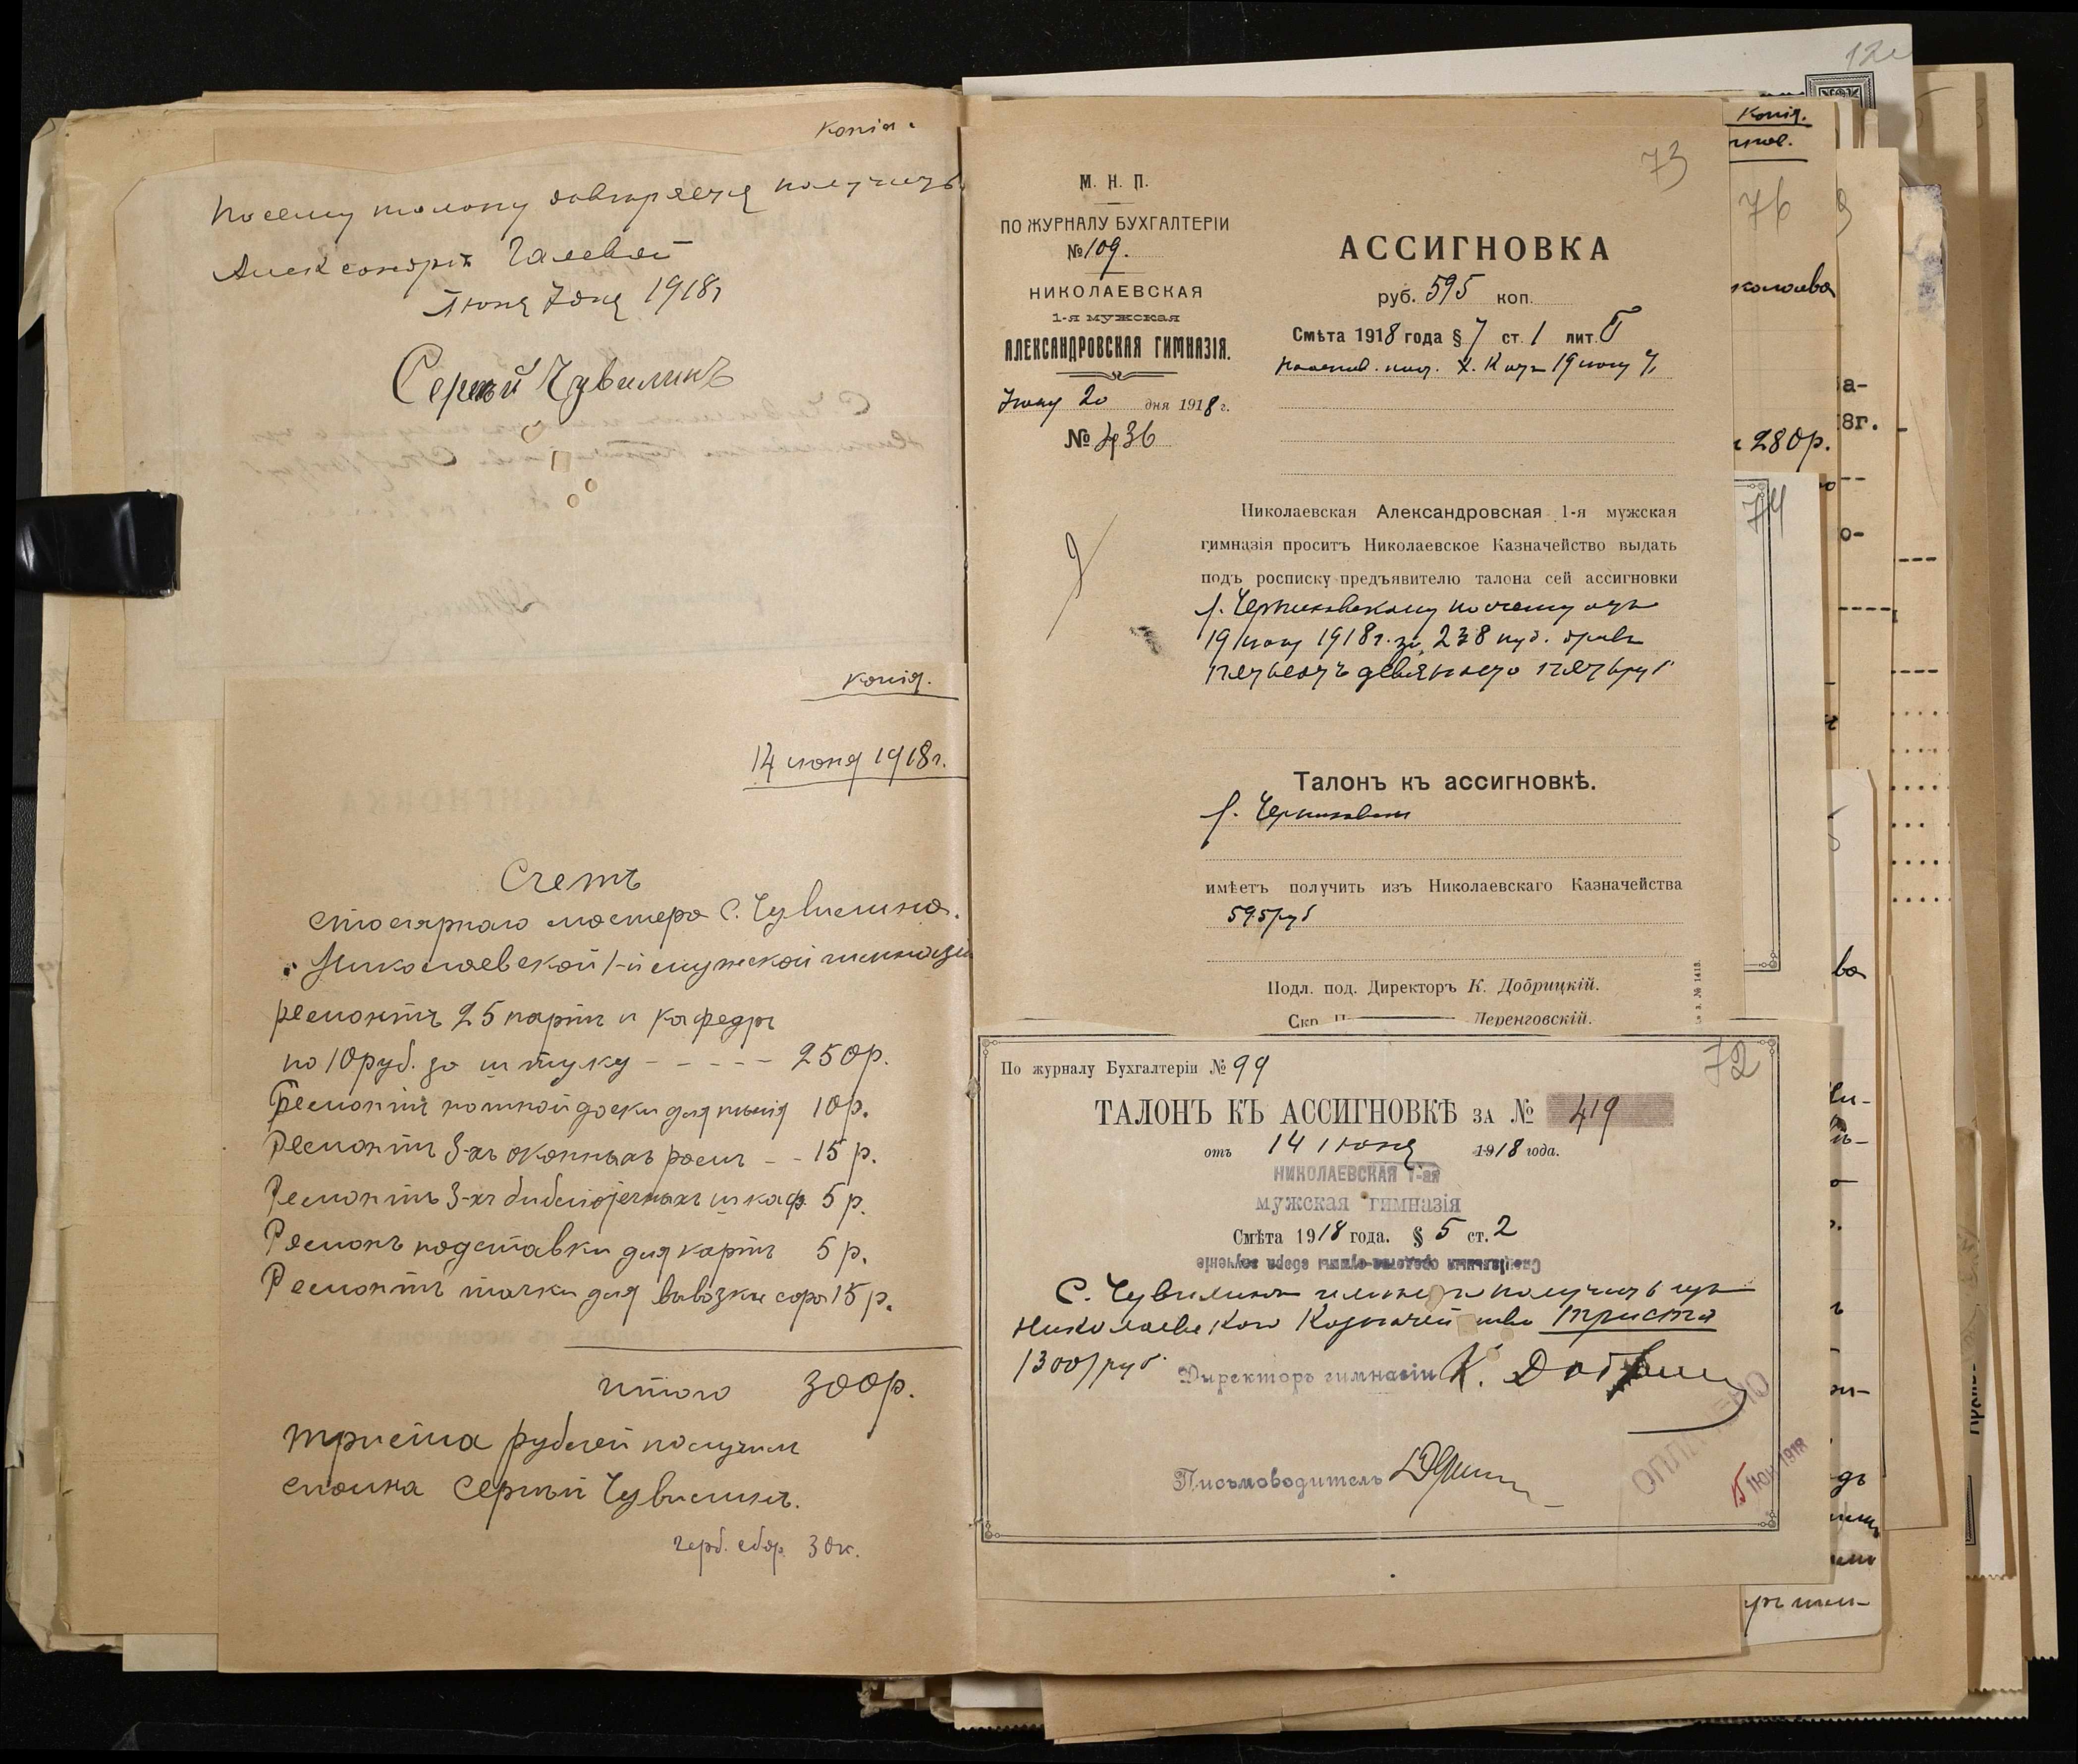 копія.
По сему талону довѣряется получить
Александрѣ Галевой
Іюня 7 дня 1918 г
Сергѣй Чувилинъ
копія.
14 июня 1918 г.
Счетъ
столярнаго мастера С. Чувилина.
Николаевской 1-й мужской гимназіи
ремонтъ 25 партъ и кафедръ
по 10 руб. за штуку - - - - - 250 р.
Ремонтъ половой доски для мытія 10 р.
Ремонтъ 3-хъ оконныхъ рамъ - - 15 р.
Ремонтъ 3-хъ библіотечныхъ шкаф. 5 р.
Ремонъ подставки для картъ 5 р.
Ремонтъ тачки для вывозки сора 15 р.
итого 300 р.
триста рублей получилъ
сполна Сергѣй Чувилинъ.
герб. сбор. 30 к.
73
М. Н. П.
ПО ЖУРНАЛУ БУХГАЛТЕРІИ
№ 109.
НИКОЛАЕВСКАЯ
1-я мужская
АЛЕКСАНДРОВСКАЯ ГИМНАЗІЯ.
Іюня 20 дня 1918 г.
№ 436
АССИГНОВКА
руб. 595 коп.
Смѣта 1918 года § 7 ст. 1 лит. Б
19 іюня
Николаевская Александровская 1-я мужская
гимназія проситъ Николаевское Казначейство выдать
подъ росписку предъявителю талона сей ассигновки
г. Черниковскому по счету отъ
19 іюня 1918 г. за 238 пуд. дровъ
пятьсотъ девяносто пять руб
Талонъ къ ассигновкѣ.
г.
имѣетъ получить изъ Николаевскаго Казначейства
595 руб
Подл. под. Директоръ К. Добрицкій.
Скр. П Деренговскій.
№ 1413.
72
По журналу Бухгалтеріи № 99
ТАЛОНЪ КЪ АССИГНОВКѢ за № 419
отъ 14 іюня 1918 года.
НИКОЛАЕВСКАЯ 1-ая
мужская гимназія
Смѣта 1918 года. § 5 ст. 2
Спеціальныя средства-суммы сбора за ученіе
С. Чувилинъ имѣетъ получить изъ
Николаевскаго Казначейства триста
/300/ руб.
Директоръ гимназіи К. Добрицкій
Письмоводитель
ОПЛАЧЕНО
15 ІЮН 1918
копія.
76
280 р.
74
8г.